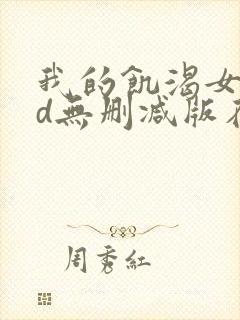 我的飢渴女
d無刪減版在
周秀紅